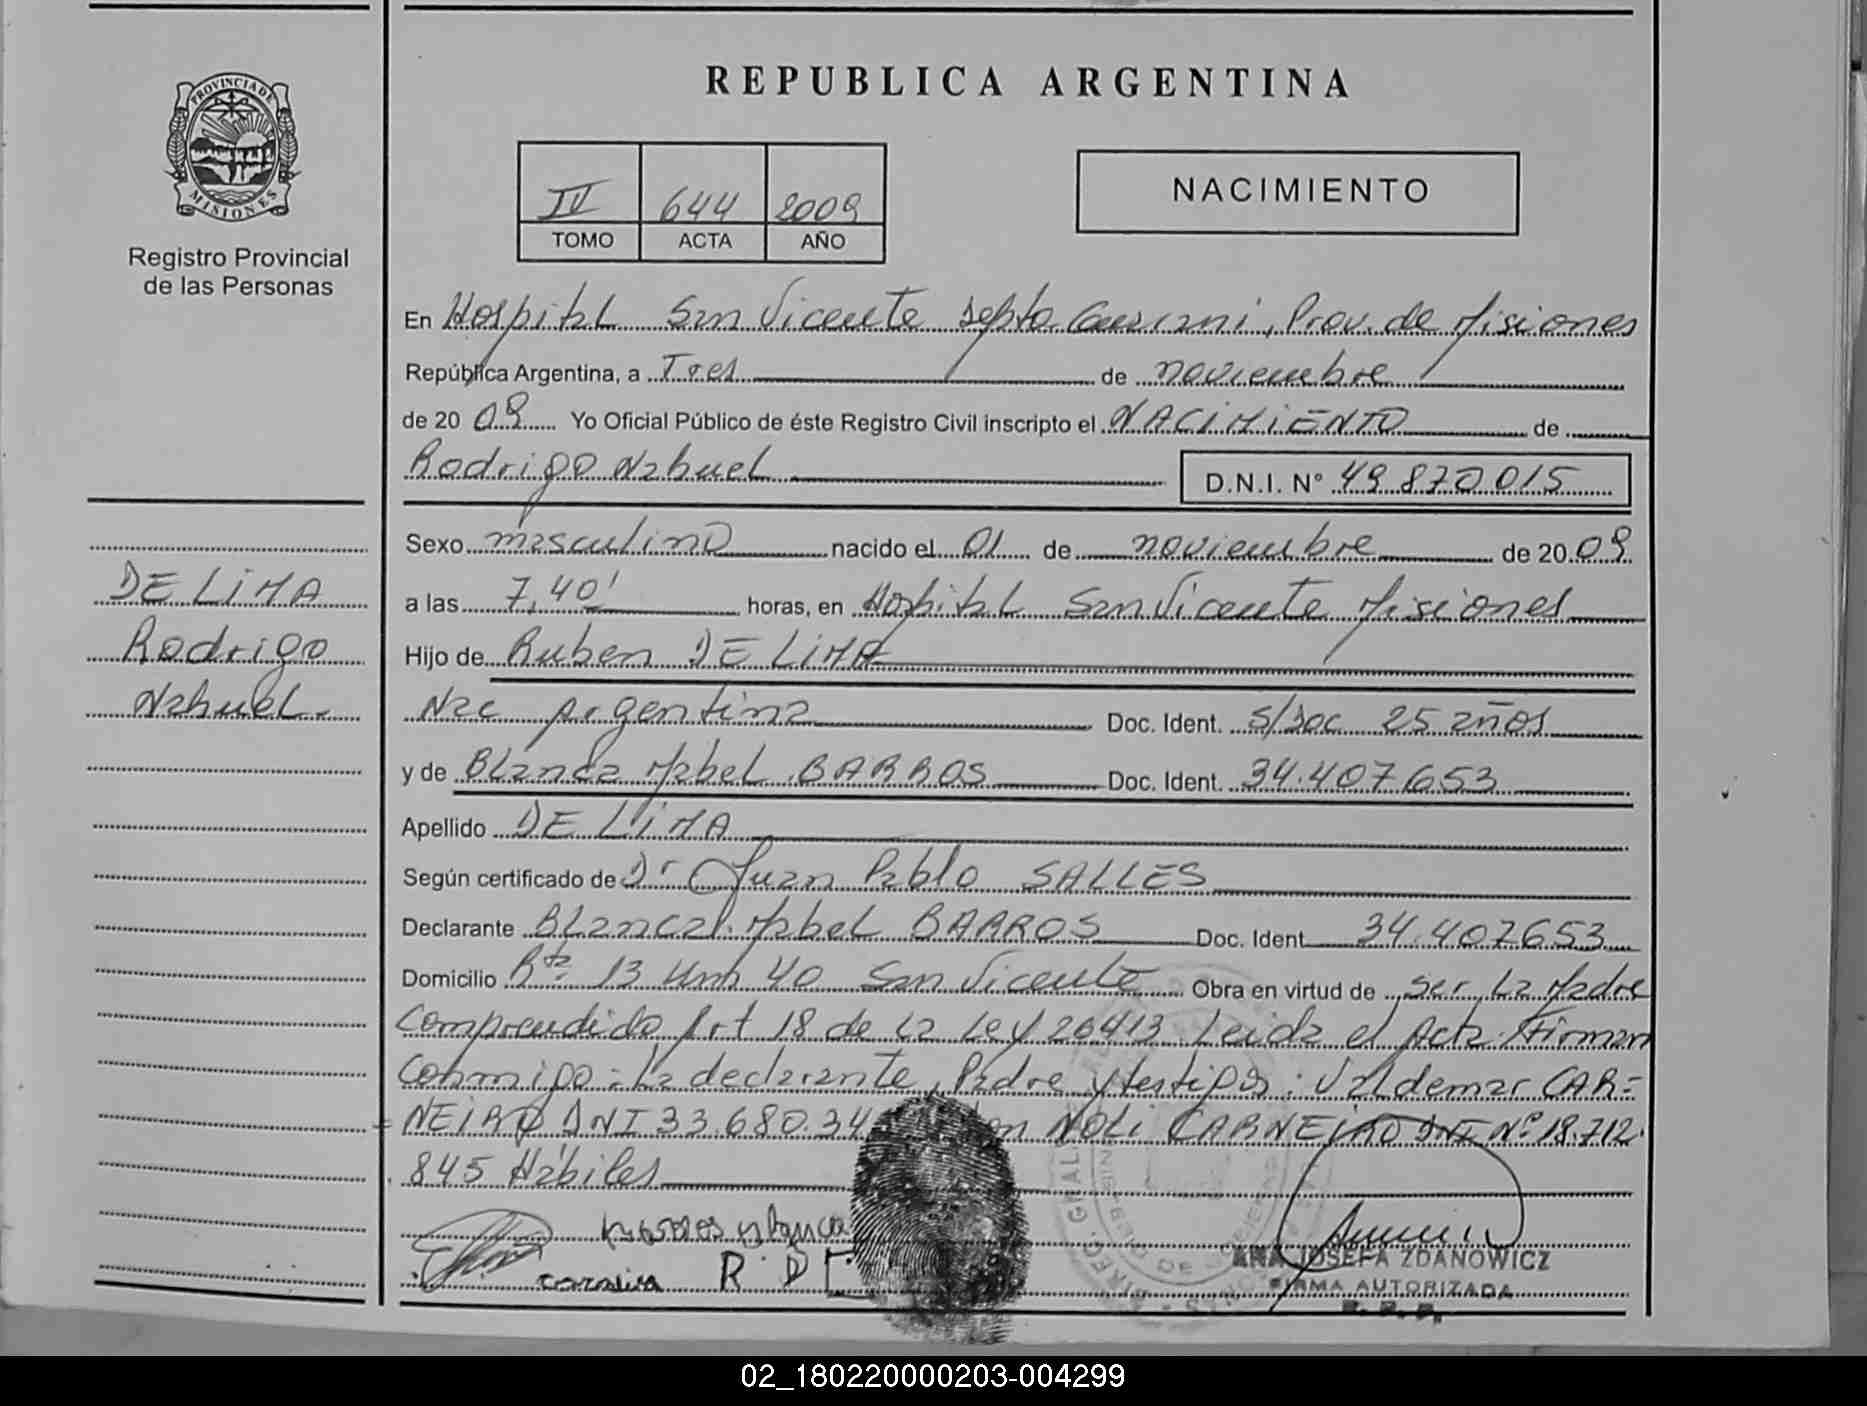 PROVINCIA DE
MISIONES
Registro Provincial
de las Personas
DE LIMA
Rodrigo
Nahuel.-
REPUBLICA ARGENTINA
IV 644 2009
TOMO ACTA AÑO
NACIMIENTO
En Hospital San Vicente Depto Guarani, Prov. de Misiones
República Argentina, a Tres de noviembre
de 20 09 Yo Oficial Público de éste Registro Civil inscripto el NACIMIENTO de
Rodrigo Nahuel D.N.I. N° 49.870.015
Sexo masculino nacido el 01 de noviembre de 20 09
a las 7,40' horas, en Hospital San Vicente Misiones
Hijo de Ruben DE LIMA
Nac Argentina Doc. Ident. S/Doc 25 años
y de Blanca Mabel BARROS Doc. Ident. 34.407.653
Apellido DE LIMA
Según certificado de Dr Juan Pablo SALLES
Declarante Blanca Mabel BARROS Doc. Ident 34.407653
Domicilio Rta 13 Km 40 San Vicente Obra en virtud de ser la Madre
Comprendido Art 18 de la Ley 26413 Leida el Acta Firman
Conmigo: La declarante, Padre y testigos: Valdemar CAR=
=NEIRO DNI 33.680.34 NOLI CARNEIRO DNI N° 18.712.
845 Hábiles
R D
ANA JOSEFA ZDANOWICZ
FIRMA AUTORIZADA
02_180220000203-004299